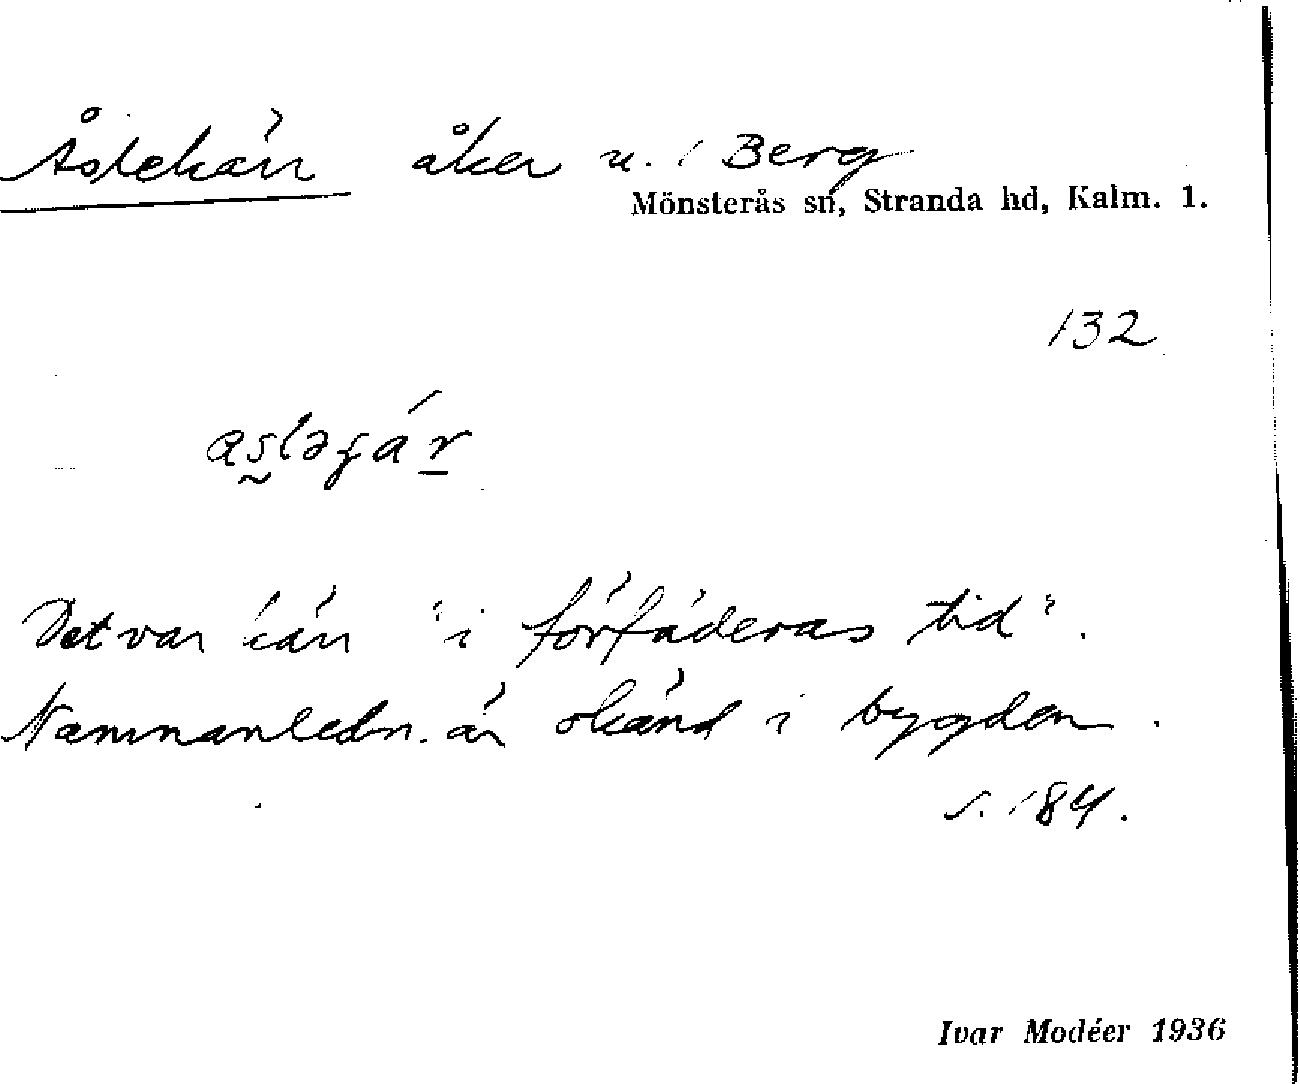 Åslekärr åker u. 1 Berg
Mönsterås sn, Stranda hd, Kalm. l.
132
Det var kärr "i förfäderas tid".
Namnanledn. är okänd i bygden.
s. 184.
Ivar Modéer 1936